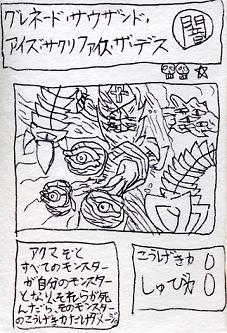 グレネード・サウザンド・
アイズ・サクリファイス・ザ・デス
闇
アクマぞと
すべてのモンスター
が自分のモンスター
となり、それらが死
んだら、そのモンスター
のこうげき力だけダメージ。
こうげき力 0
しゅび力 0